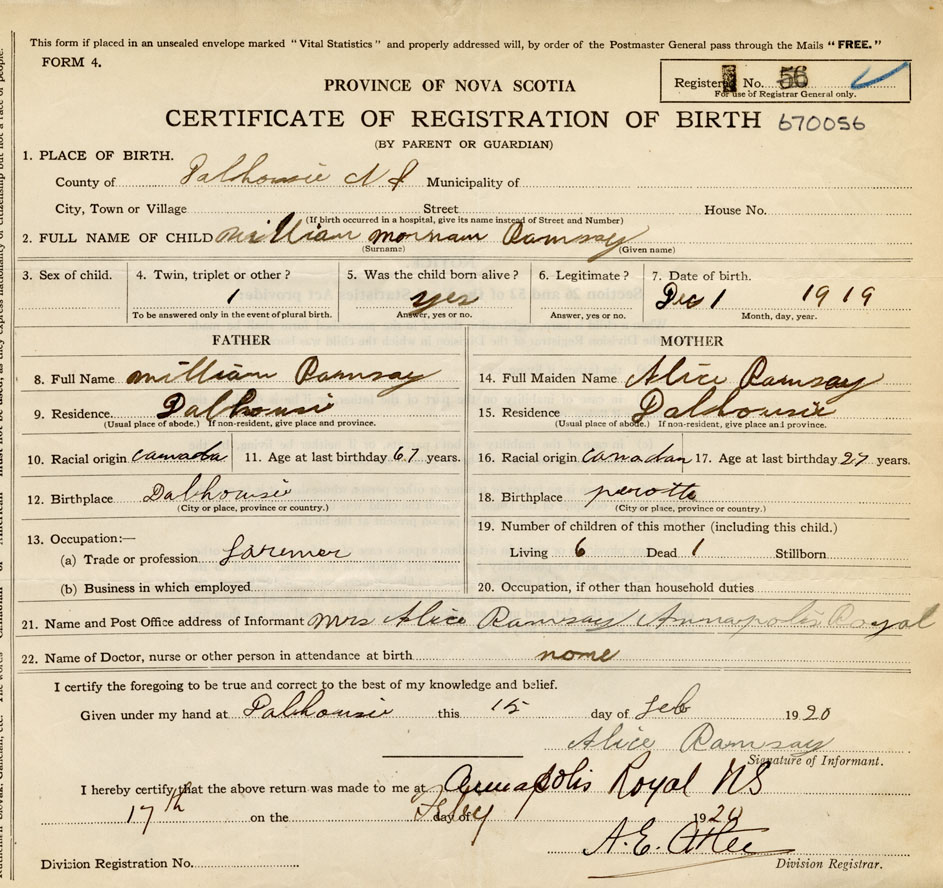 This form if placed in an unsealed envelope marked "Vital Statistics" and properly addressed will, by order of the Postmaster General pass through the Mails "FREE."
FORM 4.
PROVINCE OF NOVA SCOTIA
Registered No. 56
For use of Registrar General only.
CERTIFICATE OF REGISTRATION OF BIRTH 670056
(BY PARENT OR GUARDIAN)
1. PLACE OF BIRTH.
County of Dalhousie N S Municipality of
City, Town or Village Street House No.
(If birth occurred in a hospital, give its name instead of Street and Number)
2. FULL NAME OF CHILD William Ramsay
(Surname) (Given name)
3. Sex of child. 4. Twin, triplet or other? 5. Was the child born alive? 6. Legitimate? 7. Date of birth.
1 yes Dec 1 1919
To be answered only in the event of plural birth. Answer, yes or no. Answer, yes or no. Month, day, year.
FATHER MOTHER
8. Full Name William Ramsay 14. Full Maiden Name Alice Ramsay
9. Residence. Dalhousie 15. Residence Dalhousie
(Usual place of abode.) If non-resident, give place and province. (Usual place of abode.) If non-resident, give place and province.
10. Racial origin canada 11. Age at last birthday 67 years. 16. Racial origin canadan 17. Age at last birthday 27 years.
12. Birthplace Dalhousie 18. Birthplace perotte
(City or place, province or country.) (City or place, province or country.)
13. Occupation:— 19. Number of children of this mother (including this child.)
(a) Trade or profession Living 6 Dead 1 Stillborn
(b) Business in which employed 20. Occupation, if other than household duties
21. Name and Post Office address of Informant Mrs Alice Ramsay Annapolis Royal
22. Name of Doctor, nurse or other person in attendance at birth none
I certify the foregoing to be true and correct to the best of my knowledge and belief.
Given under my hand at Dalhousie this 15 day of Feb 1920
Alice Ramsay
Signature of Informant.
I hereby certify that the above return was made to me at Annapolis Royal NS
17th on the day of 1920
A.E.
Division Registration No. Division Registrar.